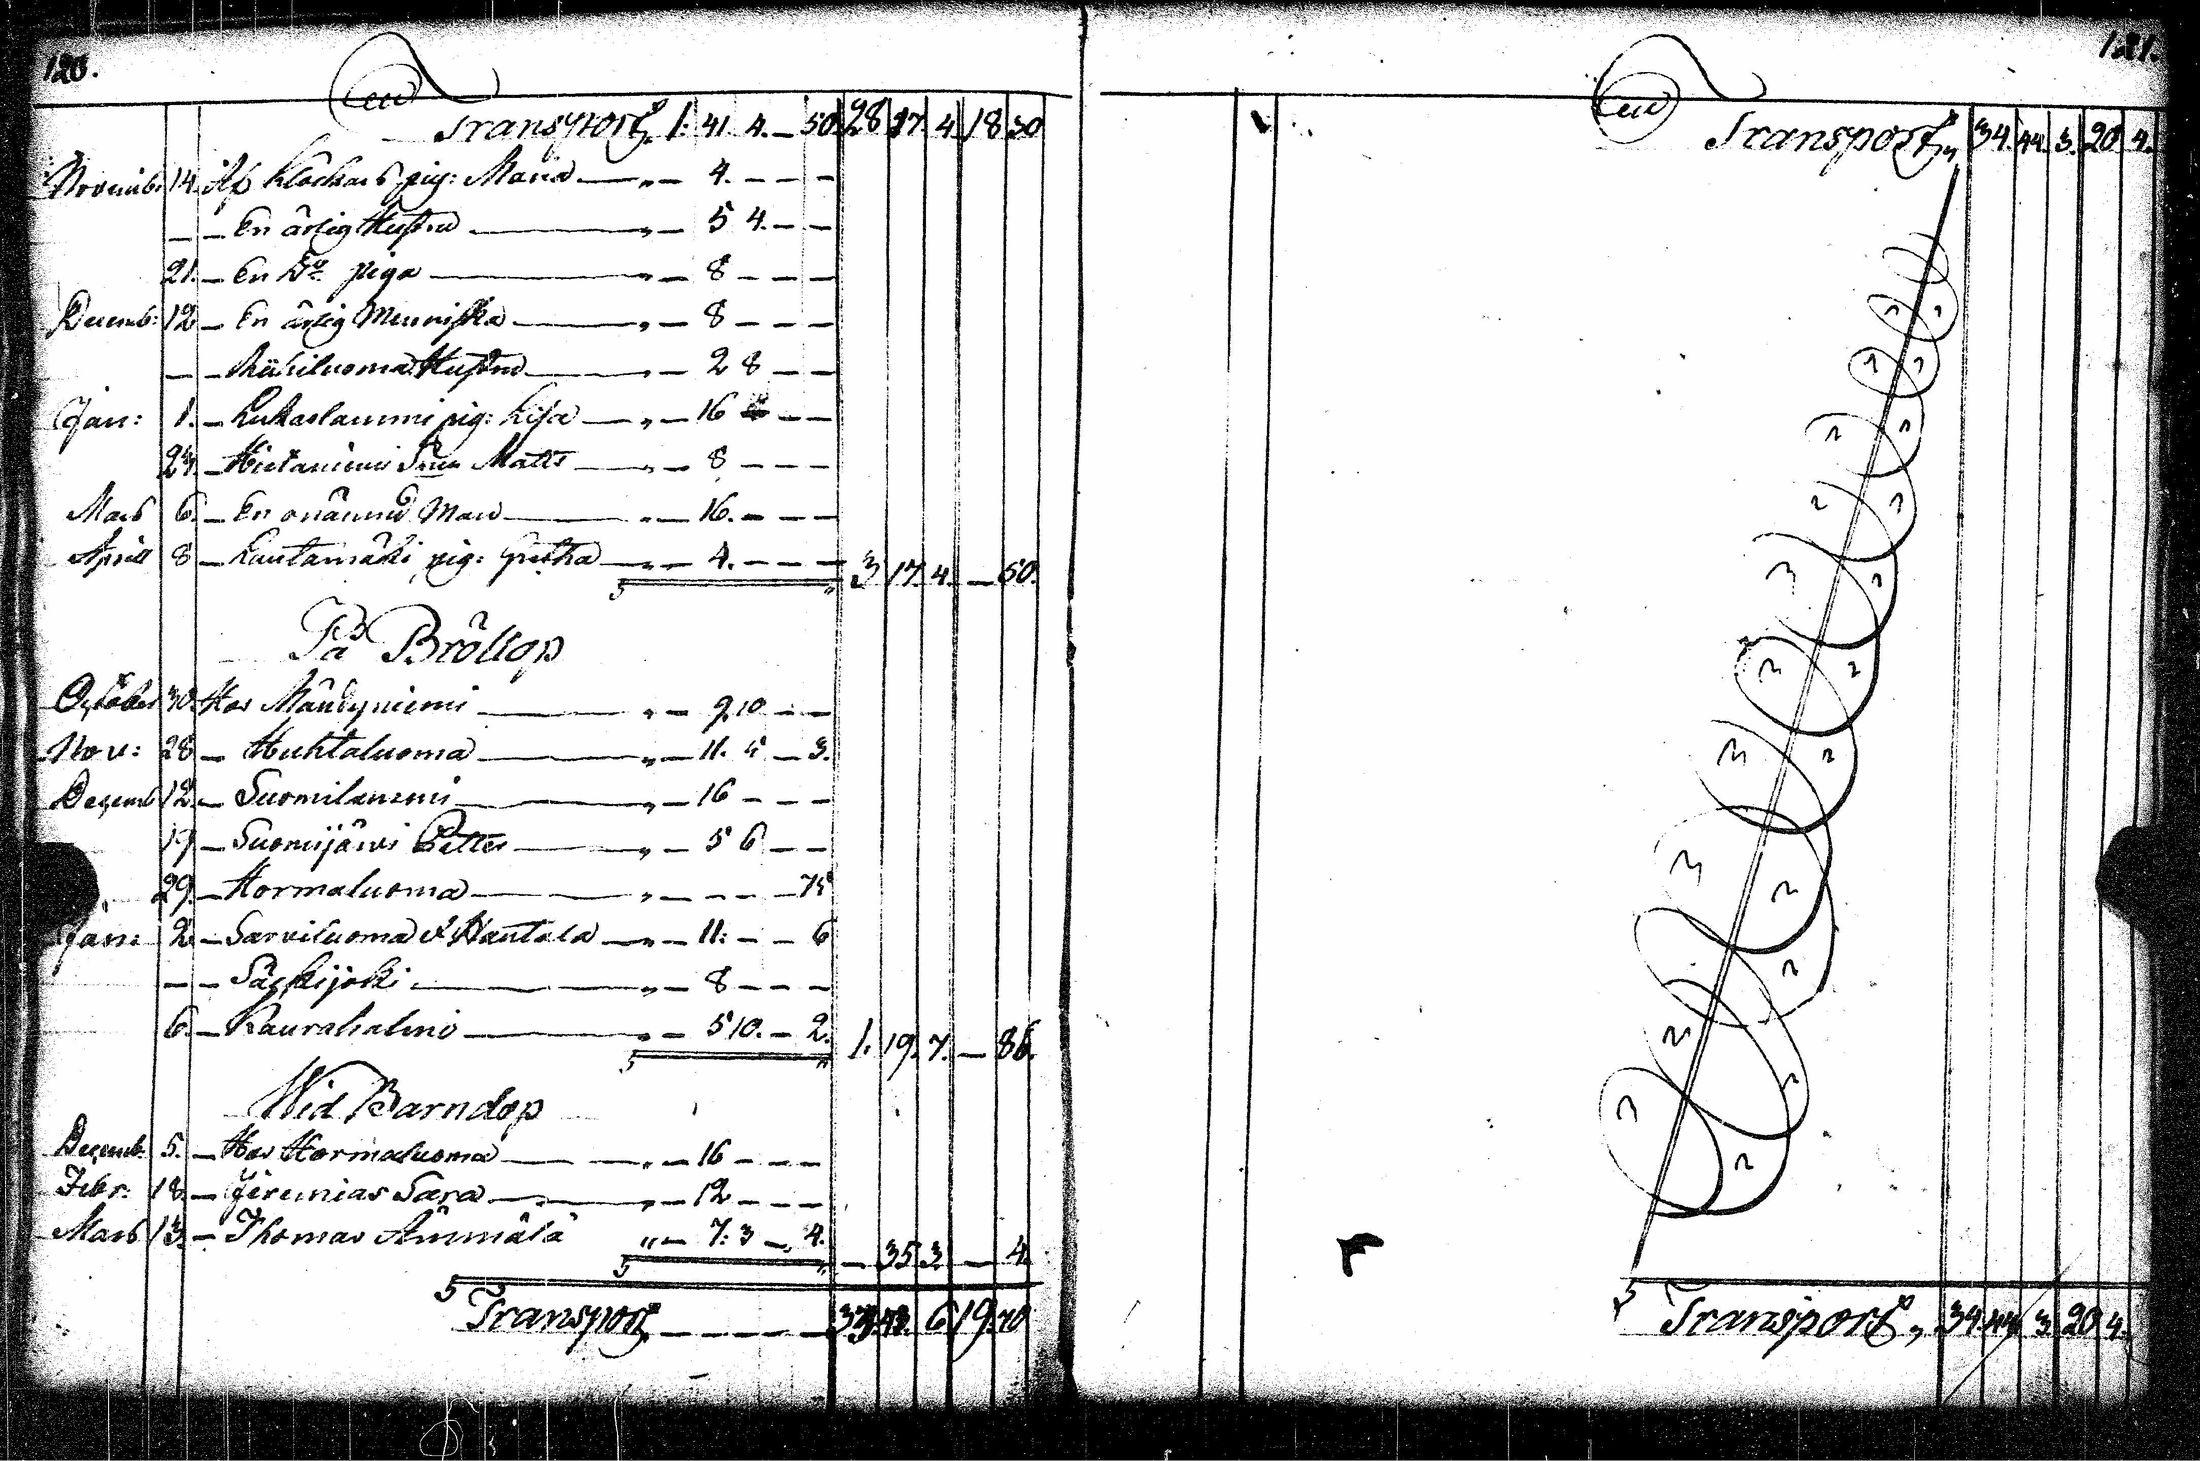 120.
Transport, 1. 41 4. — 50. 28 37 4 18 30
Novemb: 14. Af Klockars pig: Maria — „ — 4. — — —
— — En ärlig Hustru — „ — 5 4. — —
21. — En do piga — „ — 8 — — —
Decemb: 12 — En ärlig Menniska — „ — 8 — — —
— — Hustru — „ — 2 8 — —
Jan: 1. — Lukaslammi pig: Lisa — „ — 16 — —
24. — Hietaniemi Matts — „ — 8 — — —
Mars 6. — En onämnd Man — „ — 16. — — —
April 8 — Lautamäki pig: — „ — 4. — — — 3 17. 4. — 50.
På Bröllop
October 30. Hos Mändyniemi — „ — 9. 10 — —
Nov: 28 — Huhtaluoma — „ — 11. 4 — 3.
Decemb 12. — Suomilammi — „ — 16 — — —
17 — Suomijärvi Petter — „ — 5 6 — —
29. — Hormaluoma — „ — — — — 75
Jan: 2. — Sarviluoma & Hantala — „ — 11: — — 6
— — Säskijoki — „ — 8 — — —
6. — Kaurahalmi — „ — 5 10. — 2. 1. 19. 7. — 86.
Wid Barndop
Decemb: 5. — Hos Hormaluoma — „ — 16 — — —
Febr: 18. — Jeremias Sara — „ — 12 — — —
Mars 13. — Thomas Ämmälä „ — 7: 3 — 4. — 35 3. — 4.
Transport — — — — 6 19. 70
121.
Transport, 34. 44. 3. 20 4.
Transport, 34. 44 3. 20 4.